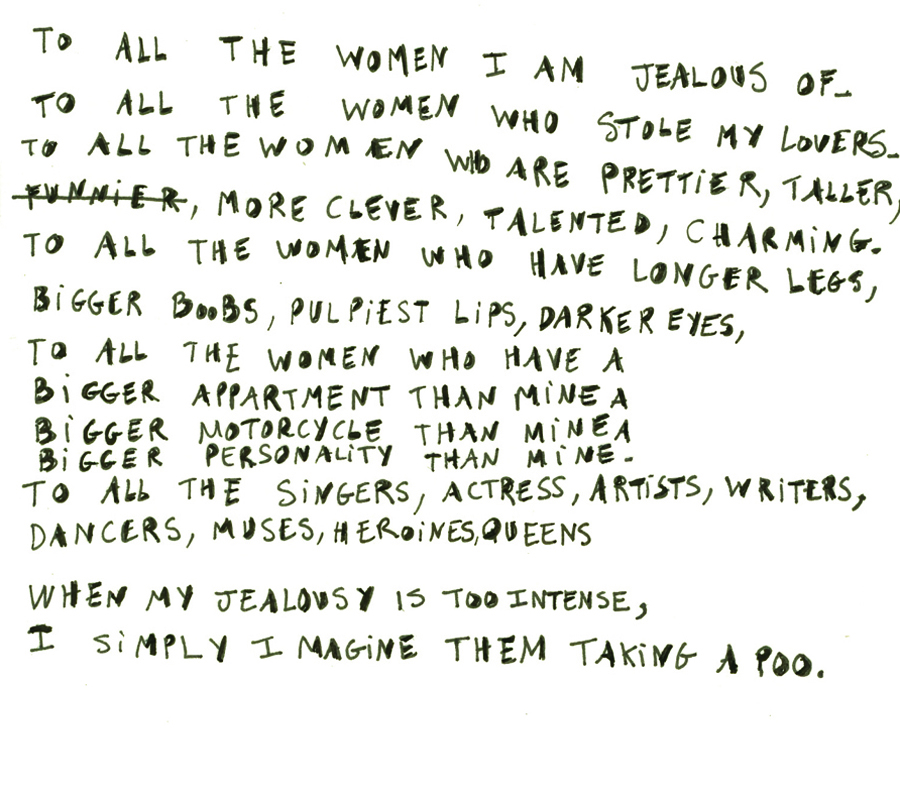 TO ALL THE WOMEN I AM JEALOUS OF_
TO ALL THE WOMEN WHO STOLE MY LOVERS_
TO ALL THE WOMEN WHO ARE PRETTIER, TALLER,
FUNNIER, MORE CLEVER, TALENTED, CHARMING.
TO ALL THE WOMEN WHO HAVE LONGER LEGS,
BIGGER BOOBS, PULPIEST LIPS, DARKER EYES,
TO ALL THE WOMEN WHO HAVE A
BIGGER APPARTMENT THAN MINE A
BIGGER MOTORCYCLE THAN MINE A
BIGGER PERSONALITY THAN MINE-
TO ALL THE SINGERS, ACTRESS, ARTISTS, WRITERS,
DANCERS, MUSES, HEROINES, QUEENS
WHEN MY JEALOUSY IS TOO INTENSE,
I SIMPLY IMAGINE THEM TAKING A POO.